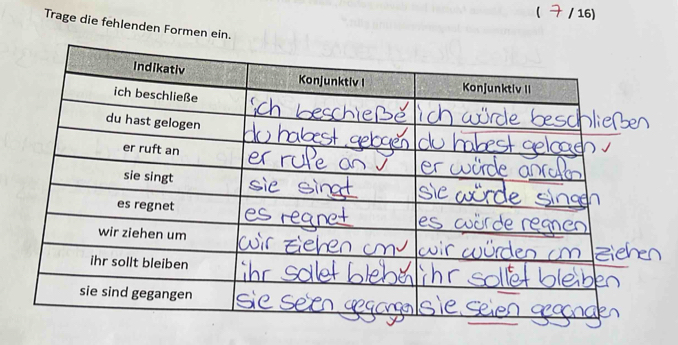 ( 7 / 16)
Trage die fehlenden Formen ein.
Indikativ Konjunktiv I Konjunktiv II
ich beschließe ich beschieße ich würde beschließen
du hast gelogen du habest gelogen du habest gelogen
er ruft an er rufe an er würde anrufen
sie singt sie singt sie würde singen
es regnet es regnet es würde regnen
wir ziehen um wir ziehen um wir würden um ziehen
ihr sollt bleiben ihr sollet bleiben ihr sollet bleiben
sie sind gegangen sie seien gegangen sie seien gegangen